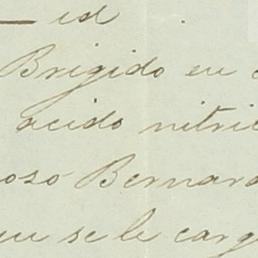 id
Brigido en
acido nitri
oso Bernar
se le carg